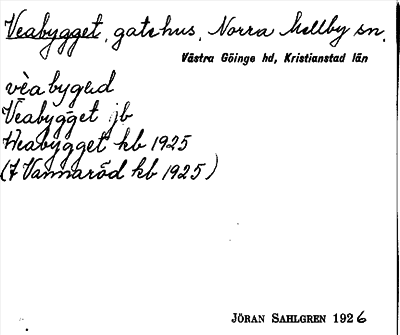 Veabygget, gatehus, Norra Mellby sn,
Västra Göinge hd, Kristianstad län
vèabygəd
Veabygget jb
Weabygget kb 1925
(7 Vannaröd kb 1925)
JÖRAN SAHLGREN 1926